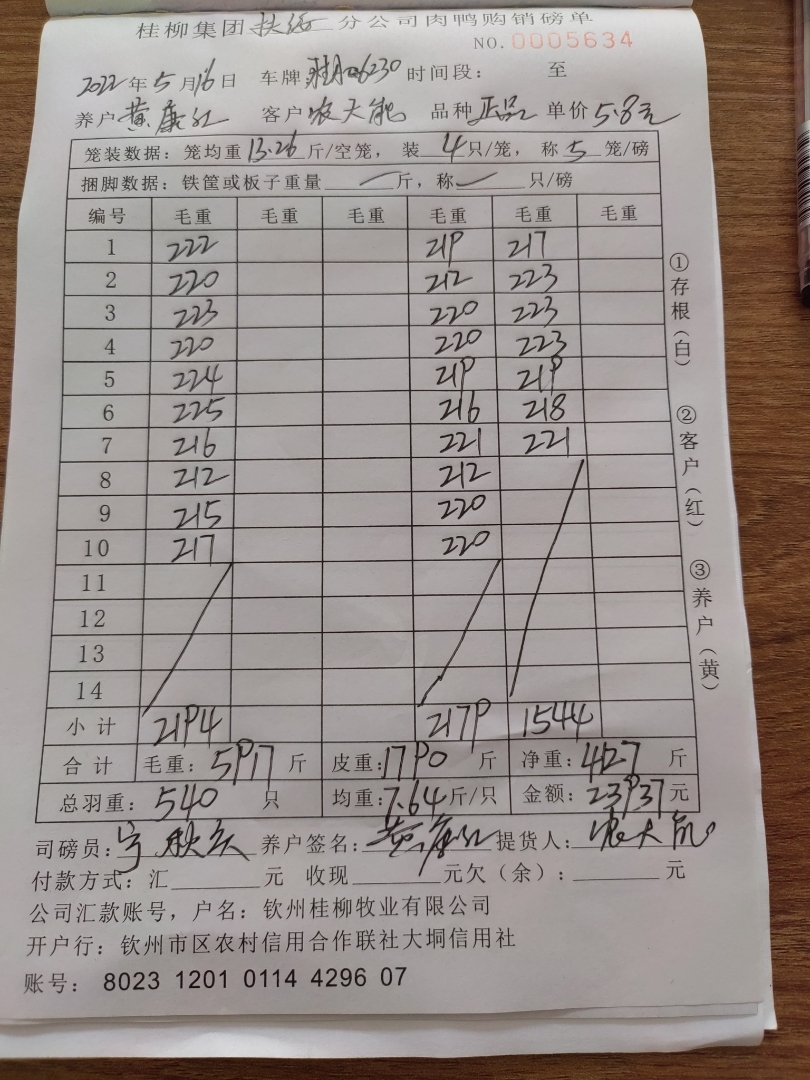 桂柳集团扶绥分公司肉鸭购销磅单
NO. 0005634
2022年5月16日 车牌 桂A06230 时间段： 至
养户 黄康红 客户 农大能 品种 正品 单价 5.8元
笼装数据：笼均重 13.26 斤/空笼，装 4 只/笼，称 5 笼/磅
捆脚数据：铁筐或板子重量 — 斤，称 — 只/磅
编号 毛重 毛重 毛重 毛重 毛重 毛重
1 222 219 217
2 220 212 223
3 223 220 223
4 220 220 223
5 224 219 219
6 225 216 218
7 216 221 221
8 212 212
9 215 220
10 217 220
11
12
13
14
小计 2194 2179 1544
合计 毛重：5917 斤 皮重：1790 斤 净重：4127 斤
总羽重：540 只 均重：7.64 斤/只 金额：23937 元
司磅员： 养户签名：黄康红 提货人：农大能
付款方式：汇 元 收现 元欠（余）： 元
公司汇款账号，户名：钦州桂柳牧业有限公司
开户行：钦州市区农村信用合作联社大垌信用社
账号： 8023 1201 0114 4296 07
①存根（白）
②客户（红）
③养户（黄）